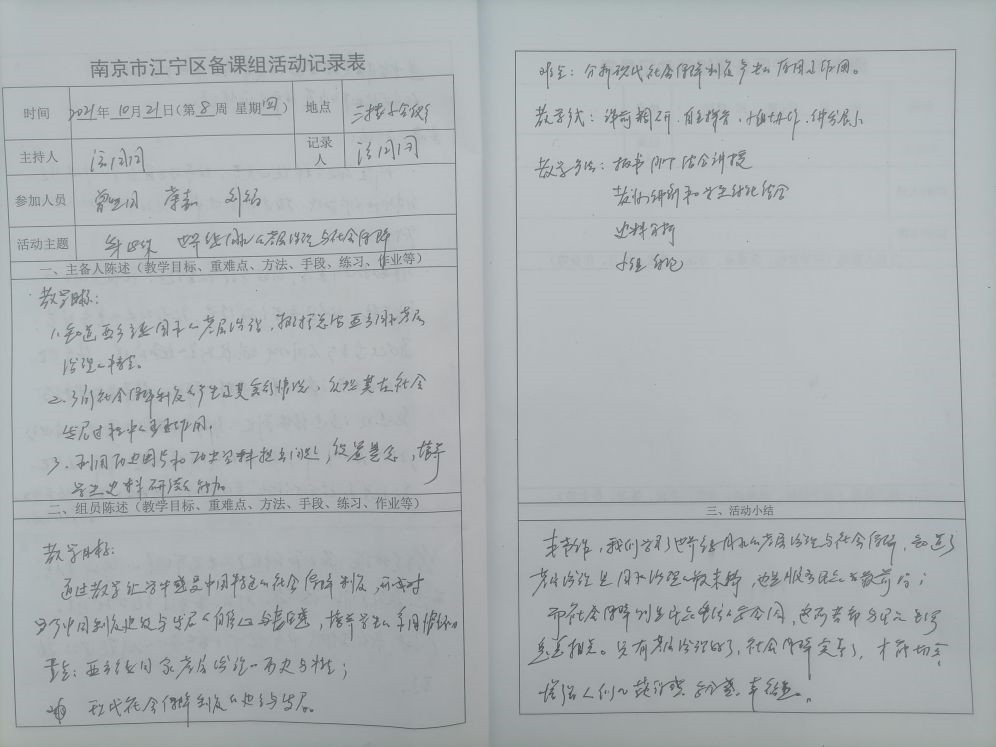 南京市江宁区备课组活动记录表
时间 2021年10月21日(第8周 星期四) 地点 二楼会议
主持人 记录人
参加人员
活动主题 第四课 世界主要国家的基层治理与社会保障
一、主备人陈述（教学目标、重难点、方法、手段、练习、作业等）
教学目标：
1.知道西方主要国家的基层治理，概括总结西方国家基层
治理的特点。
2.了解社会保障制度的产生及其实行情况，认识其在社会
发展过程中的重要作用。
3.利用历史图片和历史资料提出问题，设置悬念，培养
学生史料研读的能力。
二、组员陈述（教学目标、重难点、方法、手段、练习、作业等）
教学目标：
通过教学让学生感受中国特色的社会保障制度，形成对
中国制度建设与发展的自信心与自豪感，培养学生的家国情怀。
重点：西方各国家基层治理的历史与特点；
现代社会保障制度的建立与发展。
难点：分析现代社会保障制度产生的原因及作用。
教学方式：课前调研、自主探究、小组合作、课件展示
教学方法：板书PPT结合讲授
教师讲解和学生讨论结合
史料分析
小组讨论
三、活动小结
本节课，我们学习了世界主要国家的基层治理与社会保障，知道了
基层治理是国家治理的
而社会保障制度是社会的安全网，这两者都与
息息相关。只有基层治理好了，社会保障完善了，才能切实
增强人们的获得感、安全感、幸福感。